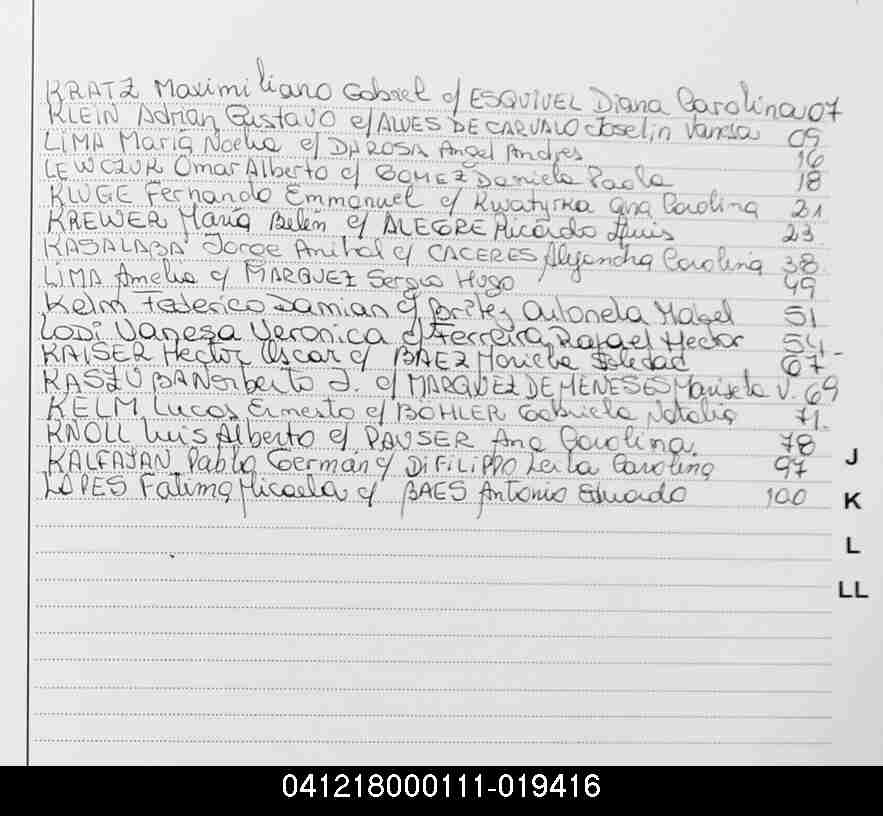 KRATZ Maximiliano Gabriel c/ ESQUIVEL Diana Carolina 07
KLEIN Adrian Gustavo c/ ALVES DE CARVALO Joselin Vanesa 09
LIMA María Noelia c/ DA ROSA Angel Andres 16
LEWCZUK Omar Alberto c/ GOMEZ Daniela Paola 18
KLUGE Fernando Emmanuel c/ Kwatyrka Ana Carolina 21
KREWER María Belén c/ ALEGRE Ricardo Luis 23
KASALABA Jorge Anibal c/ CACERES Alejandra Carolina 38
LIMA Amelia c/ MARQUEZ Sergio Hugo 49
Kelm Federico Damian c/ Britez Antonela Mabel 51
LODI Vanesa Veronica c/ Ferreira Rafael Hector 54-
KAISER Hector Oscar c/ BAEZ Mariela Soledad 67
KASZUBA Norberto J. c/ MARQUEZ DE MENESES Marisela V. 69
KELM Lucas Ernesto c/ BOHLER Gabriela Natalia 71.
KNOLL Luis Alberto c/ PAUSER Ana Carolina. 78
J
KALFAJAN Pablo Germán c/ DI FILIPPO Leila Carolina 97
LOPES Fatima Micaela c/ BAES Antonio Eduardo 100
K
L
LL
041218000111-019416